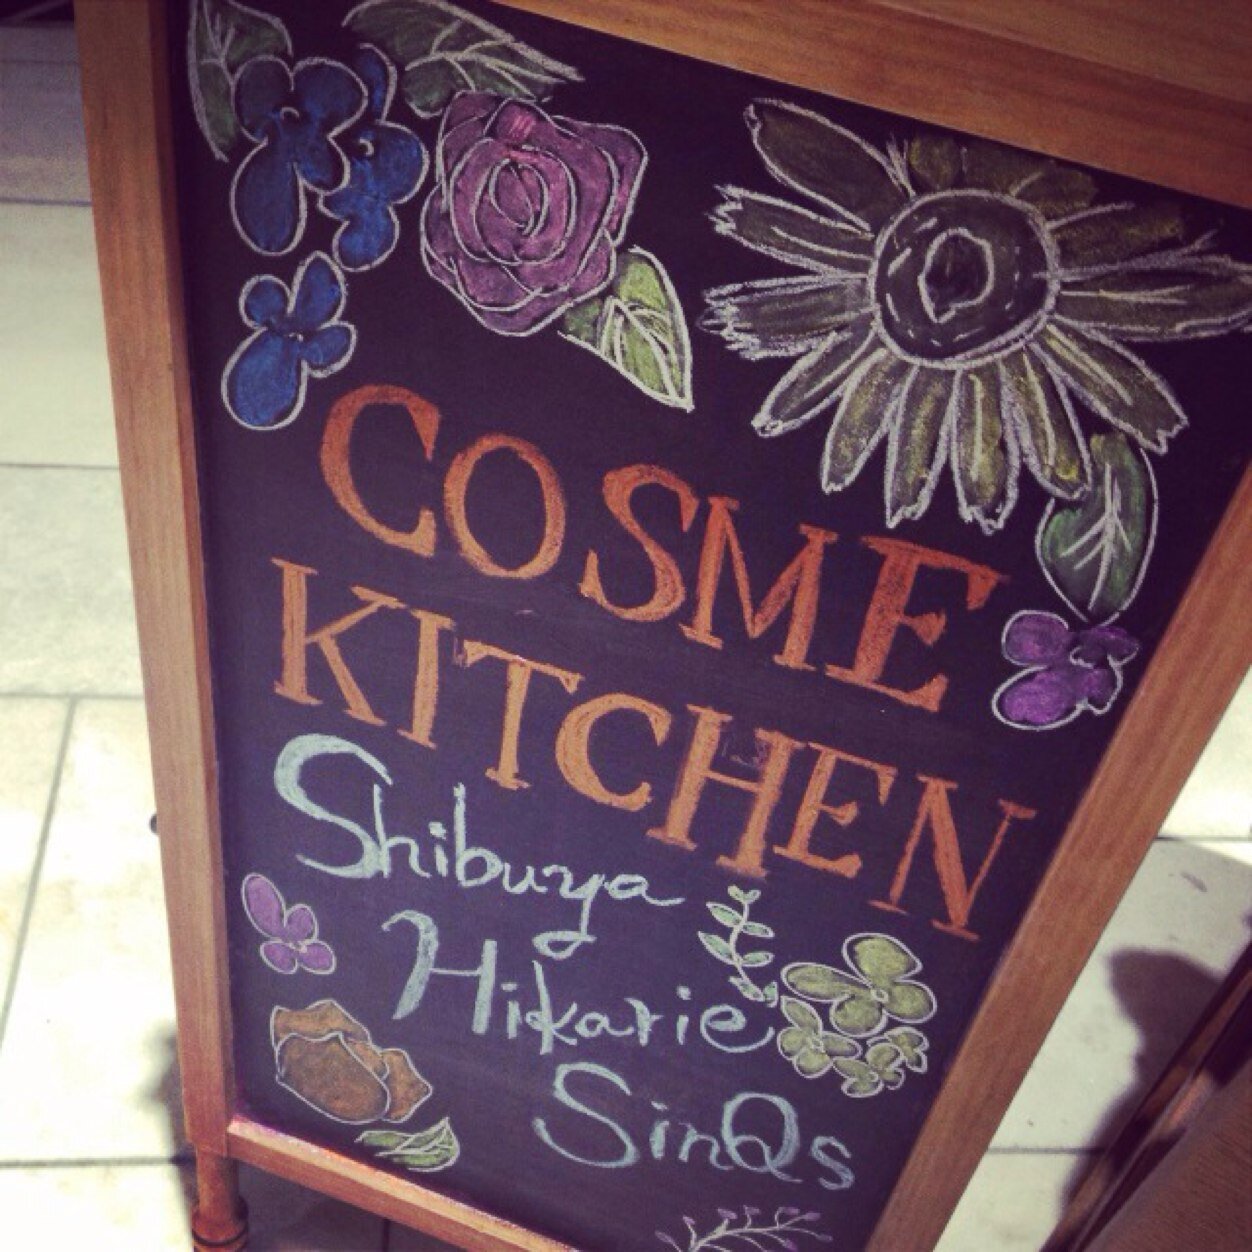 COSME
KITCHEN
Shibuya
Hikarie
SinQs